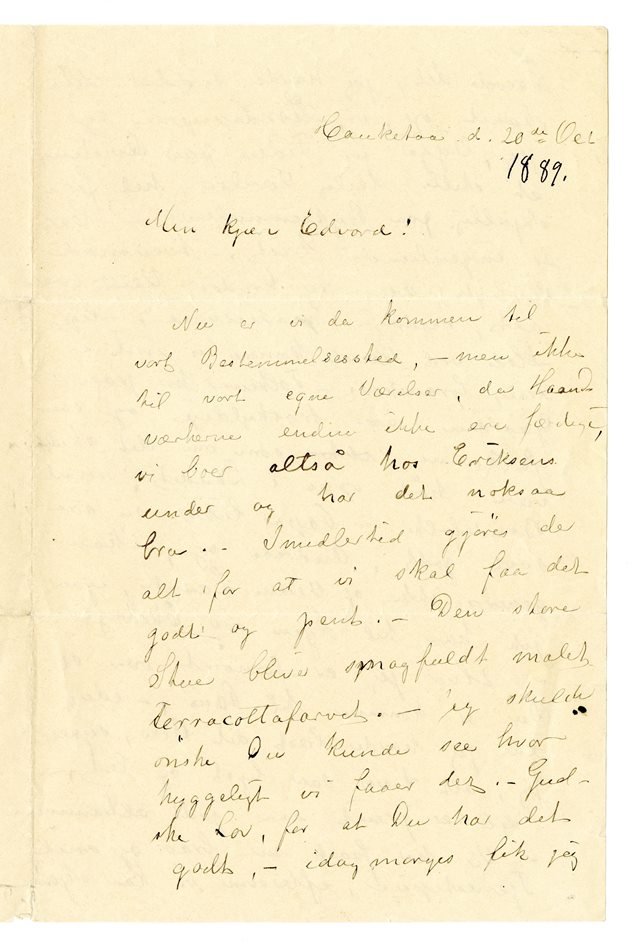 Hauketoa d. 20de Oct
1889.
Min kjære Edvard!
Nu er vi da kommen til
vort Bestemmelsessted, – men ikke
til vort egne Værelser, da Haand
værkerne endnu ikke ere færdige,
vi boer altså hos Eriksens
under og har det noksaa
bra. – Imidlertid gjöres de
alt for at vi skal faa det
godt og pent. – Den store
Stue blive smagfuldt malet
Terracottafarvet. – jeg skulde
önske Du kunde see hvor
hyggeligt vi faaer det. – Gud-
ske Lov, for at Du har det
godt, – idag morges fik jeg